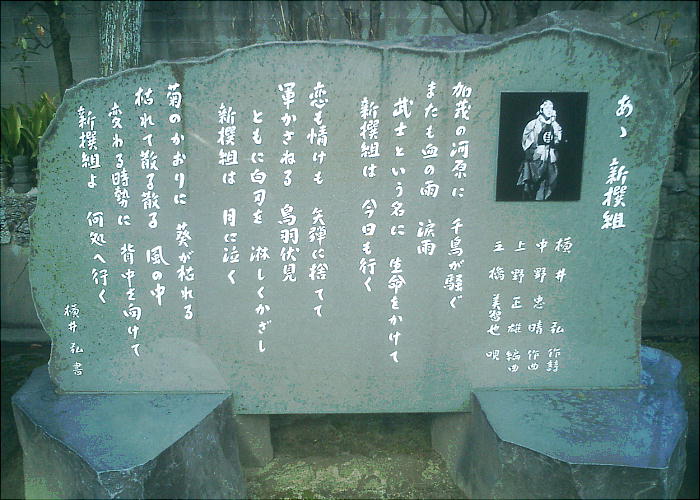 あゝ 新撰組
横井 弘 作詩
中野忠晴 作曲
上野正雄 編曲
三橋美智也 唄
加茂の河原に 千鳥が騒ぐ
またも血の雨 涙雨
武士という名に 生命をかけて
新撰組は 今日も行く
恋も情けも 矢弾に捨てて
軍かさねる 鳥羽伏見
ともに白刃を 淋しくかざし
新撰組は 月に泣く
菊のかおりに 葵が枯れる
枯れて散る散る 風の中
変わる時勢に 背中を向けて
新撰組よ 何処へ行く
横井 弘 書